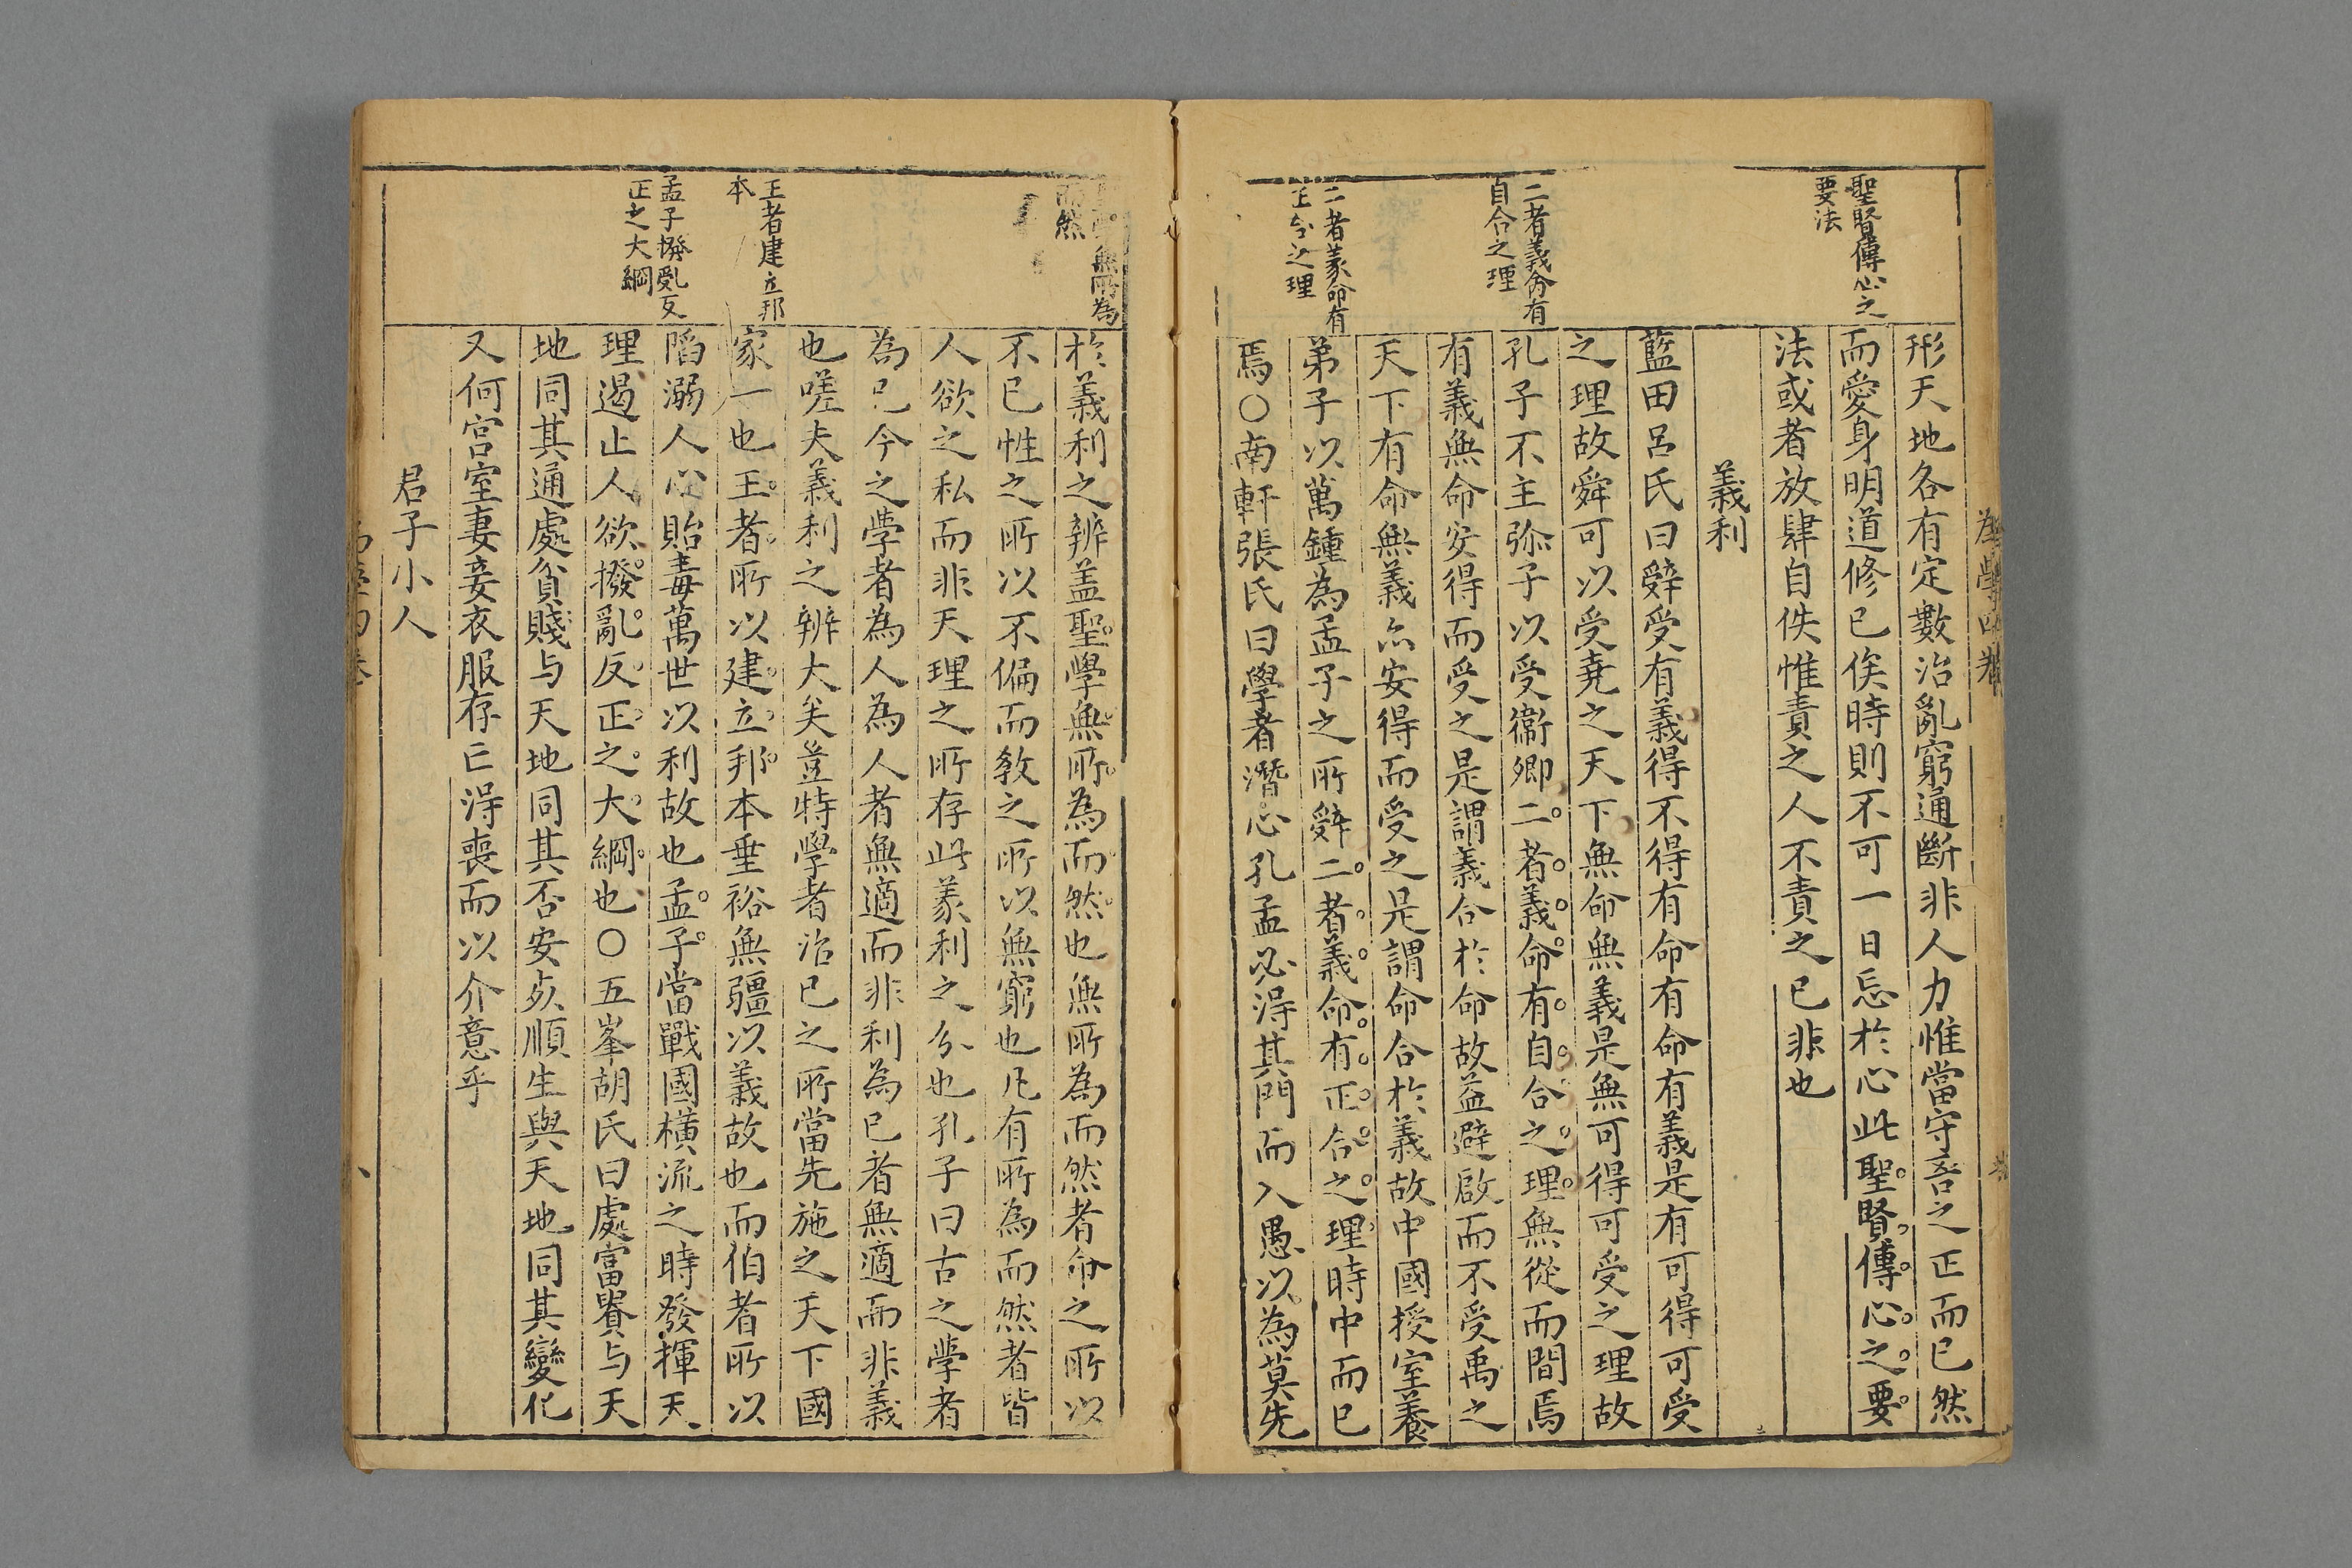 聖賢傳心之
要法
二者義命有
自合之理
二者義命有
正合之理
形天地各有定數治亂窮通斷非人力惟當守吾之正而已然
而愛身明道修已俟時則不可一日忘於心此聖賢傳心之要
法或者放肆自佚惟責之人不責之已非也
義利
藍田呂氏曰辤受有義得不得有命有命有義是有可得可受
之理故舜可以受堯之天下無命無義是無可得可受之理故
孔子不主弥子以受衞卿二者義命有自合之理無從而間焉
有義無命安得而受之是謂義合於命故益避啟而不受禹之
天下有命無義亦安得而受之是謂命合於義故中國授室養
弟子以萬鍾為孟子之所辤二者義命有正合之理時中而已
焉○南軒張氏曰學者潛心孔孟必淂其門而入愚以為莫先
為學四卷
無所為
而然
王者建立邦
本
孟子撥亂反
正之大綱
於義利之辨盖聖學無所為而然也無所為而然者命之所以
不已性之所以不偏而教之所以無窮也凡有所為而然者皆
人欲之私而非天理之所存此義利之分也孔子曰古之學者
為已今之學者為人為人者無適而非利為已者無適而非義
也嗟夫義利之辨大矣豈特學者治已之所當先施之天下國
家一也王者所以建立邦本垂裕無疆以義故也而伯者所以
陷溺人心貽毒萬世以利故也孟子當戰國橫流之時發揮天
理遏止人欲撥亂反正之大綱也○五峯胡氏曰處富貴与天
地同其通處貧賤与天地同其否安死順生與天地同其變化
又何宮室妻妾衣服存亡淂喪而以介意乎
君子小人